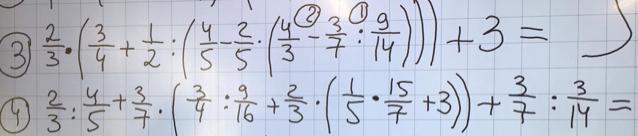 ③ 2/3 · (3/4 + 1/2 : (4/5 - 2/5 · (4/3 - ② 3/7 ① : 9/14))) + 3 =
④ 2/3 : 4/5 + 3/7 · (3/4 : 9/16 + 2/3 · (1/5 · 15/7 + 3)) + 3/7 : 3/14 =